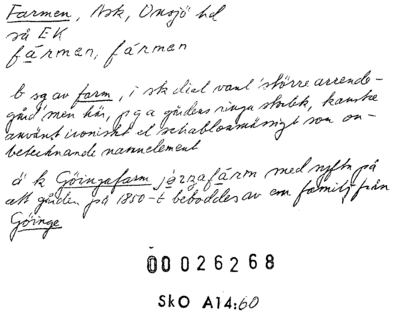 Farmen, Ask, Onsjö hd
så EK
fármen, fármen
b sg av farm, i sk dial vanl 'större arrende-
gård' men här, p g a gårdens ringa storlek, kanske
använt ironiskt el schablonmässigt som on-
betecknande namnelement
ä k Göingafarm jøŋgafárm med uppg på
att gården på 1850-t beboddes av en familj från
Göinge
00026268
SkO A14:60